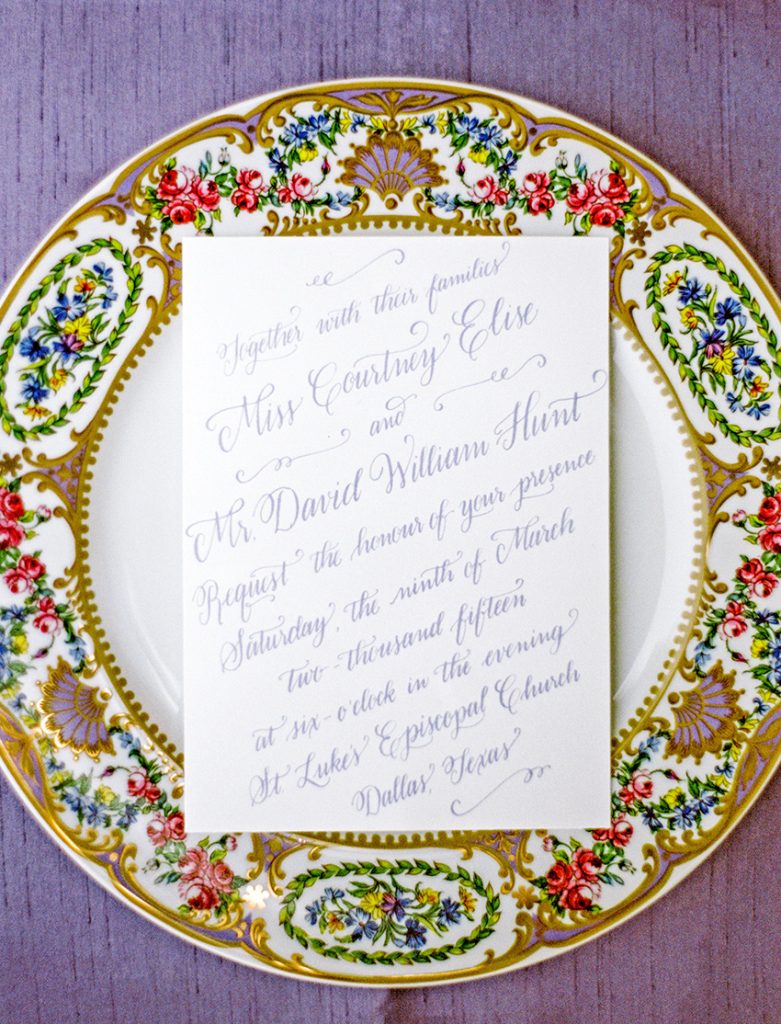 Together with their families
Miss Courtney Elise
and
Mr. David William Hunt
Request the honour of your presence
Saturday, the ninth of March
two-thousand fifteen
at six-o'clock in the evening
St. Luke's Episcopal Church
Dallas, Texas